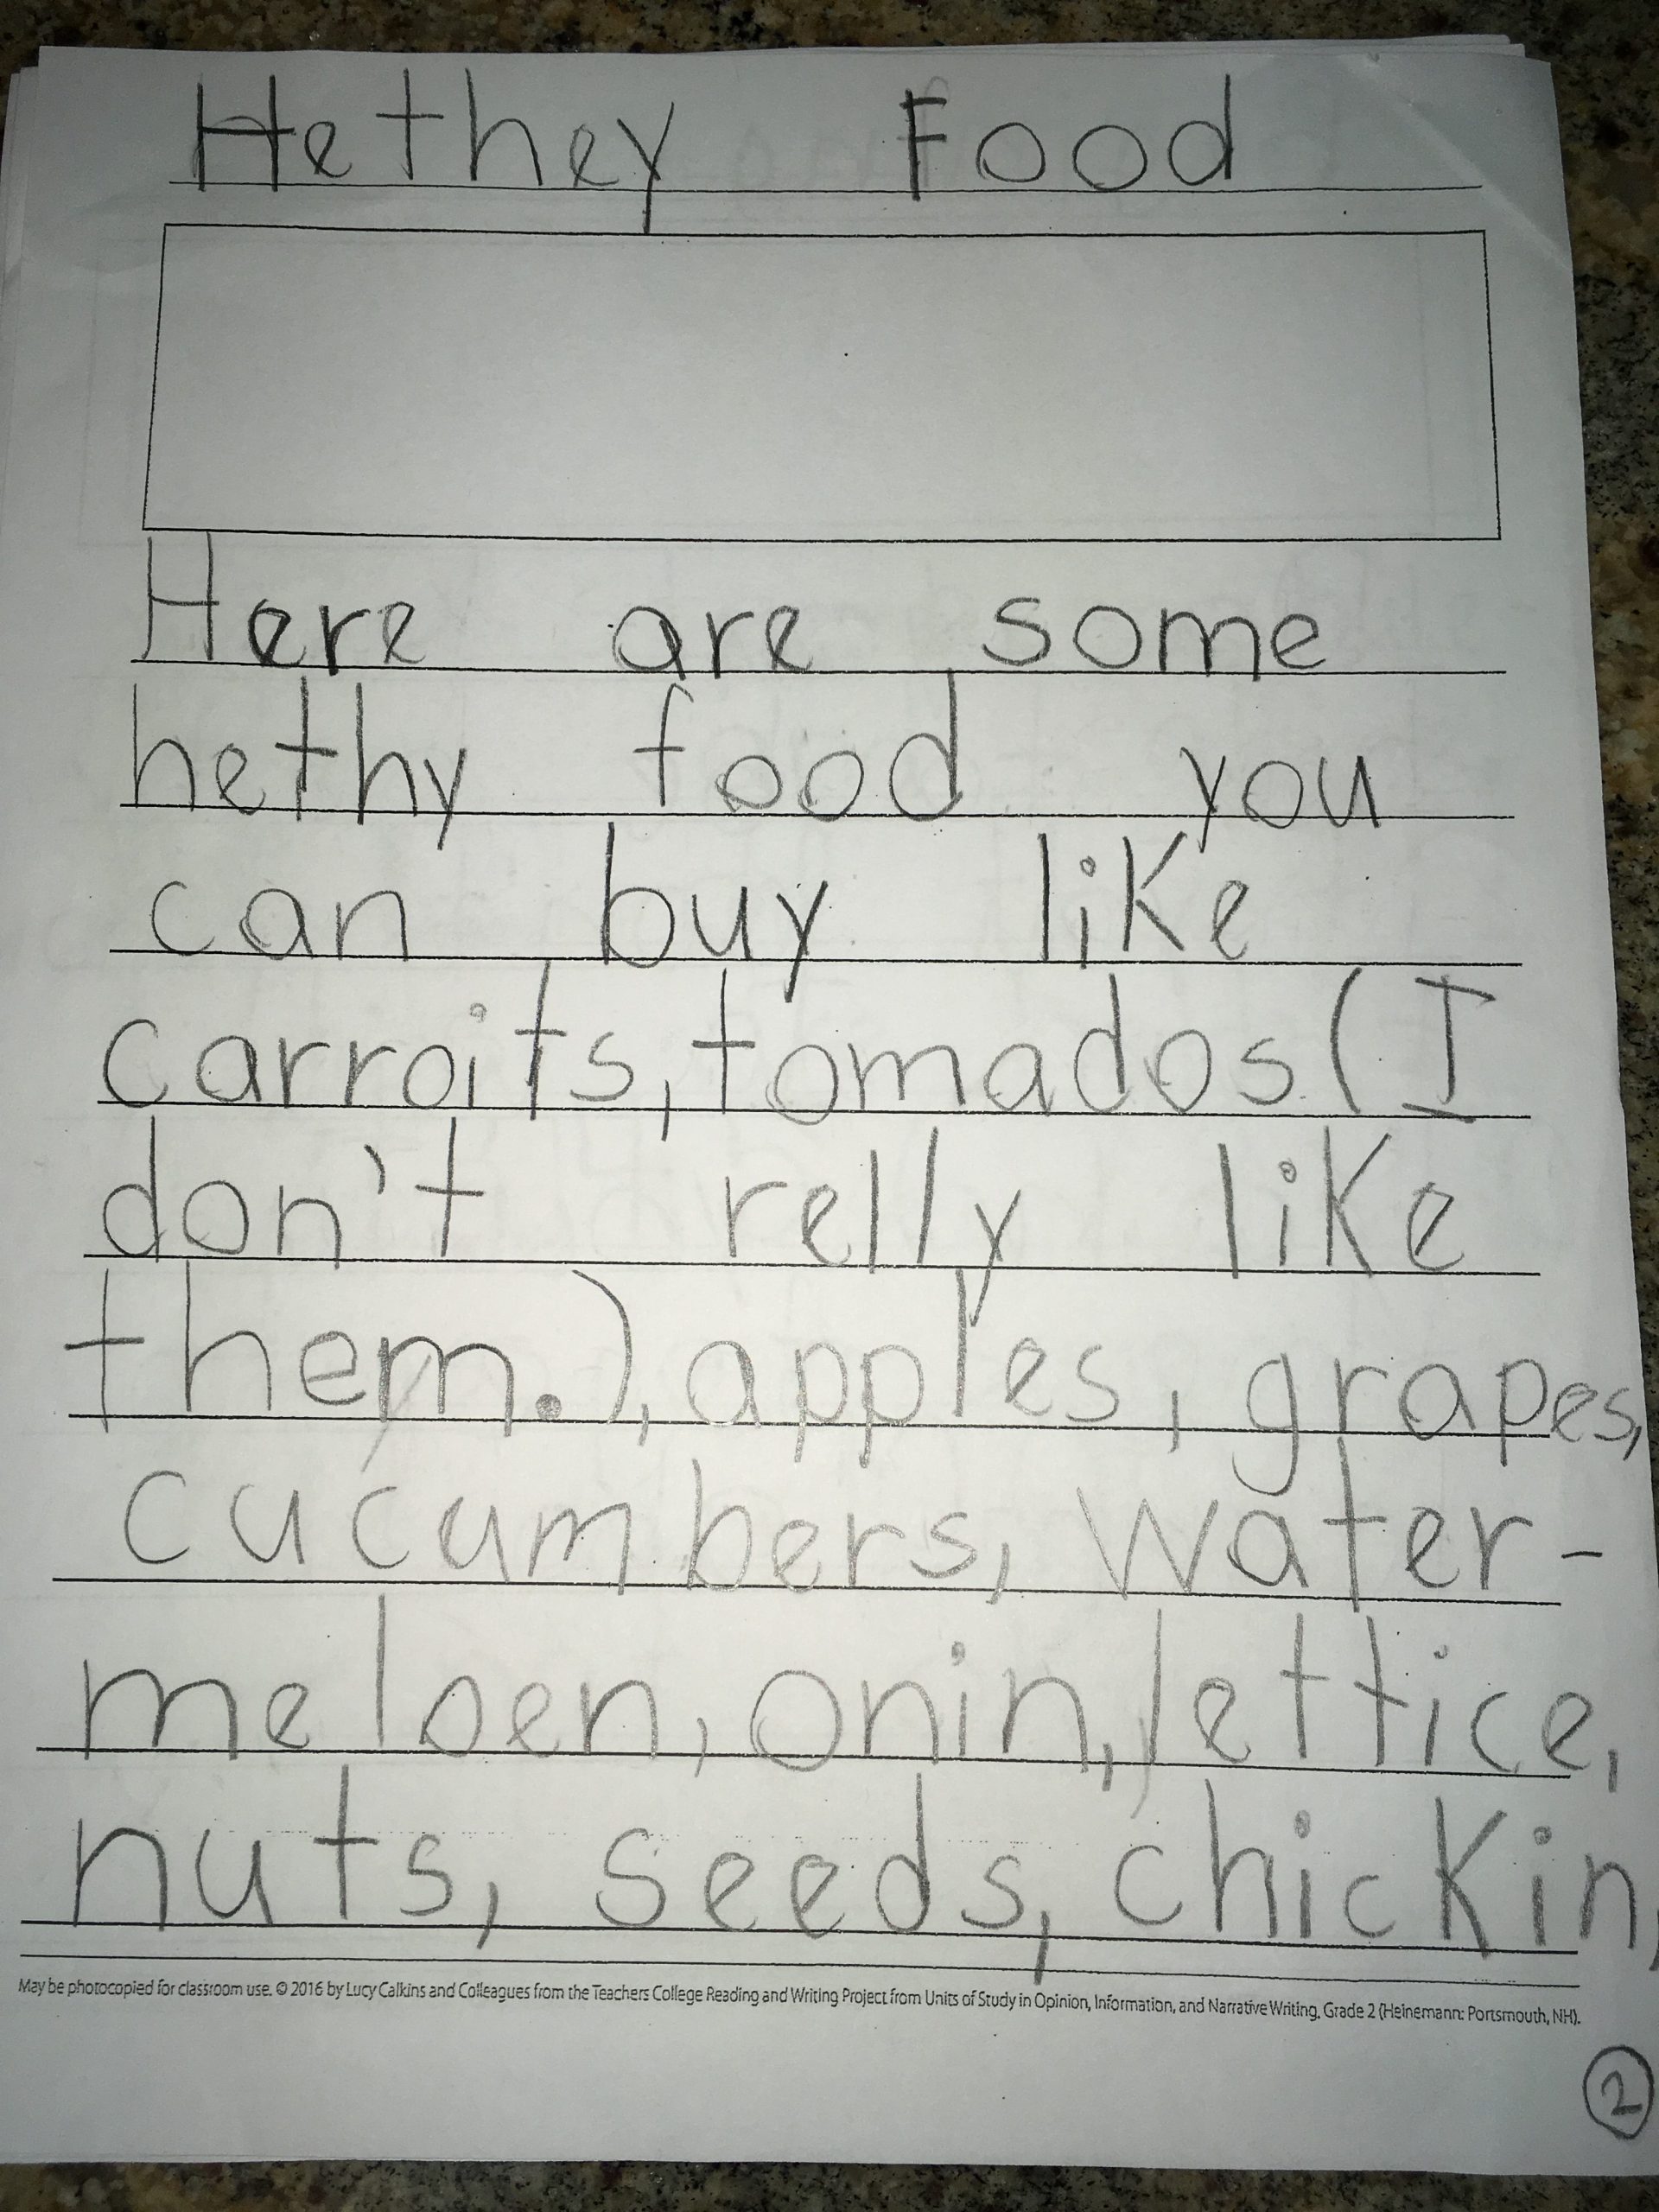 Hethey Food
Here are some
hethy food you
can buy like
carroits, tomados (I
don't relly like
them.), apples, grapes,
cucumbers, water-
meloen, onin, lettice,
nuts, seeds, chickin,
May be photocopied for classroom use. © 2016 by Lucy Calkins and Colleagues from the Teachers College Reading and Writing Project from Units of Study in Opinion, Information, and Narrative Writing, Grade 2 (Heinemann: Portsmouth, NH).
2